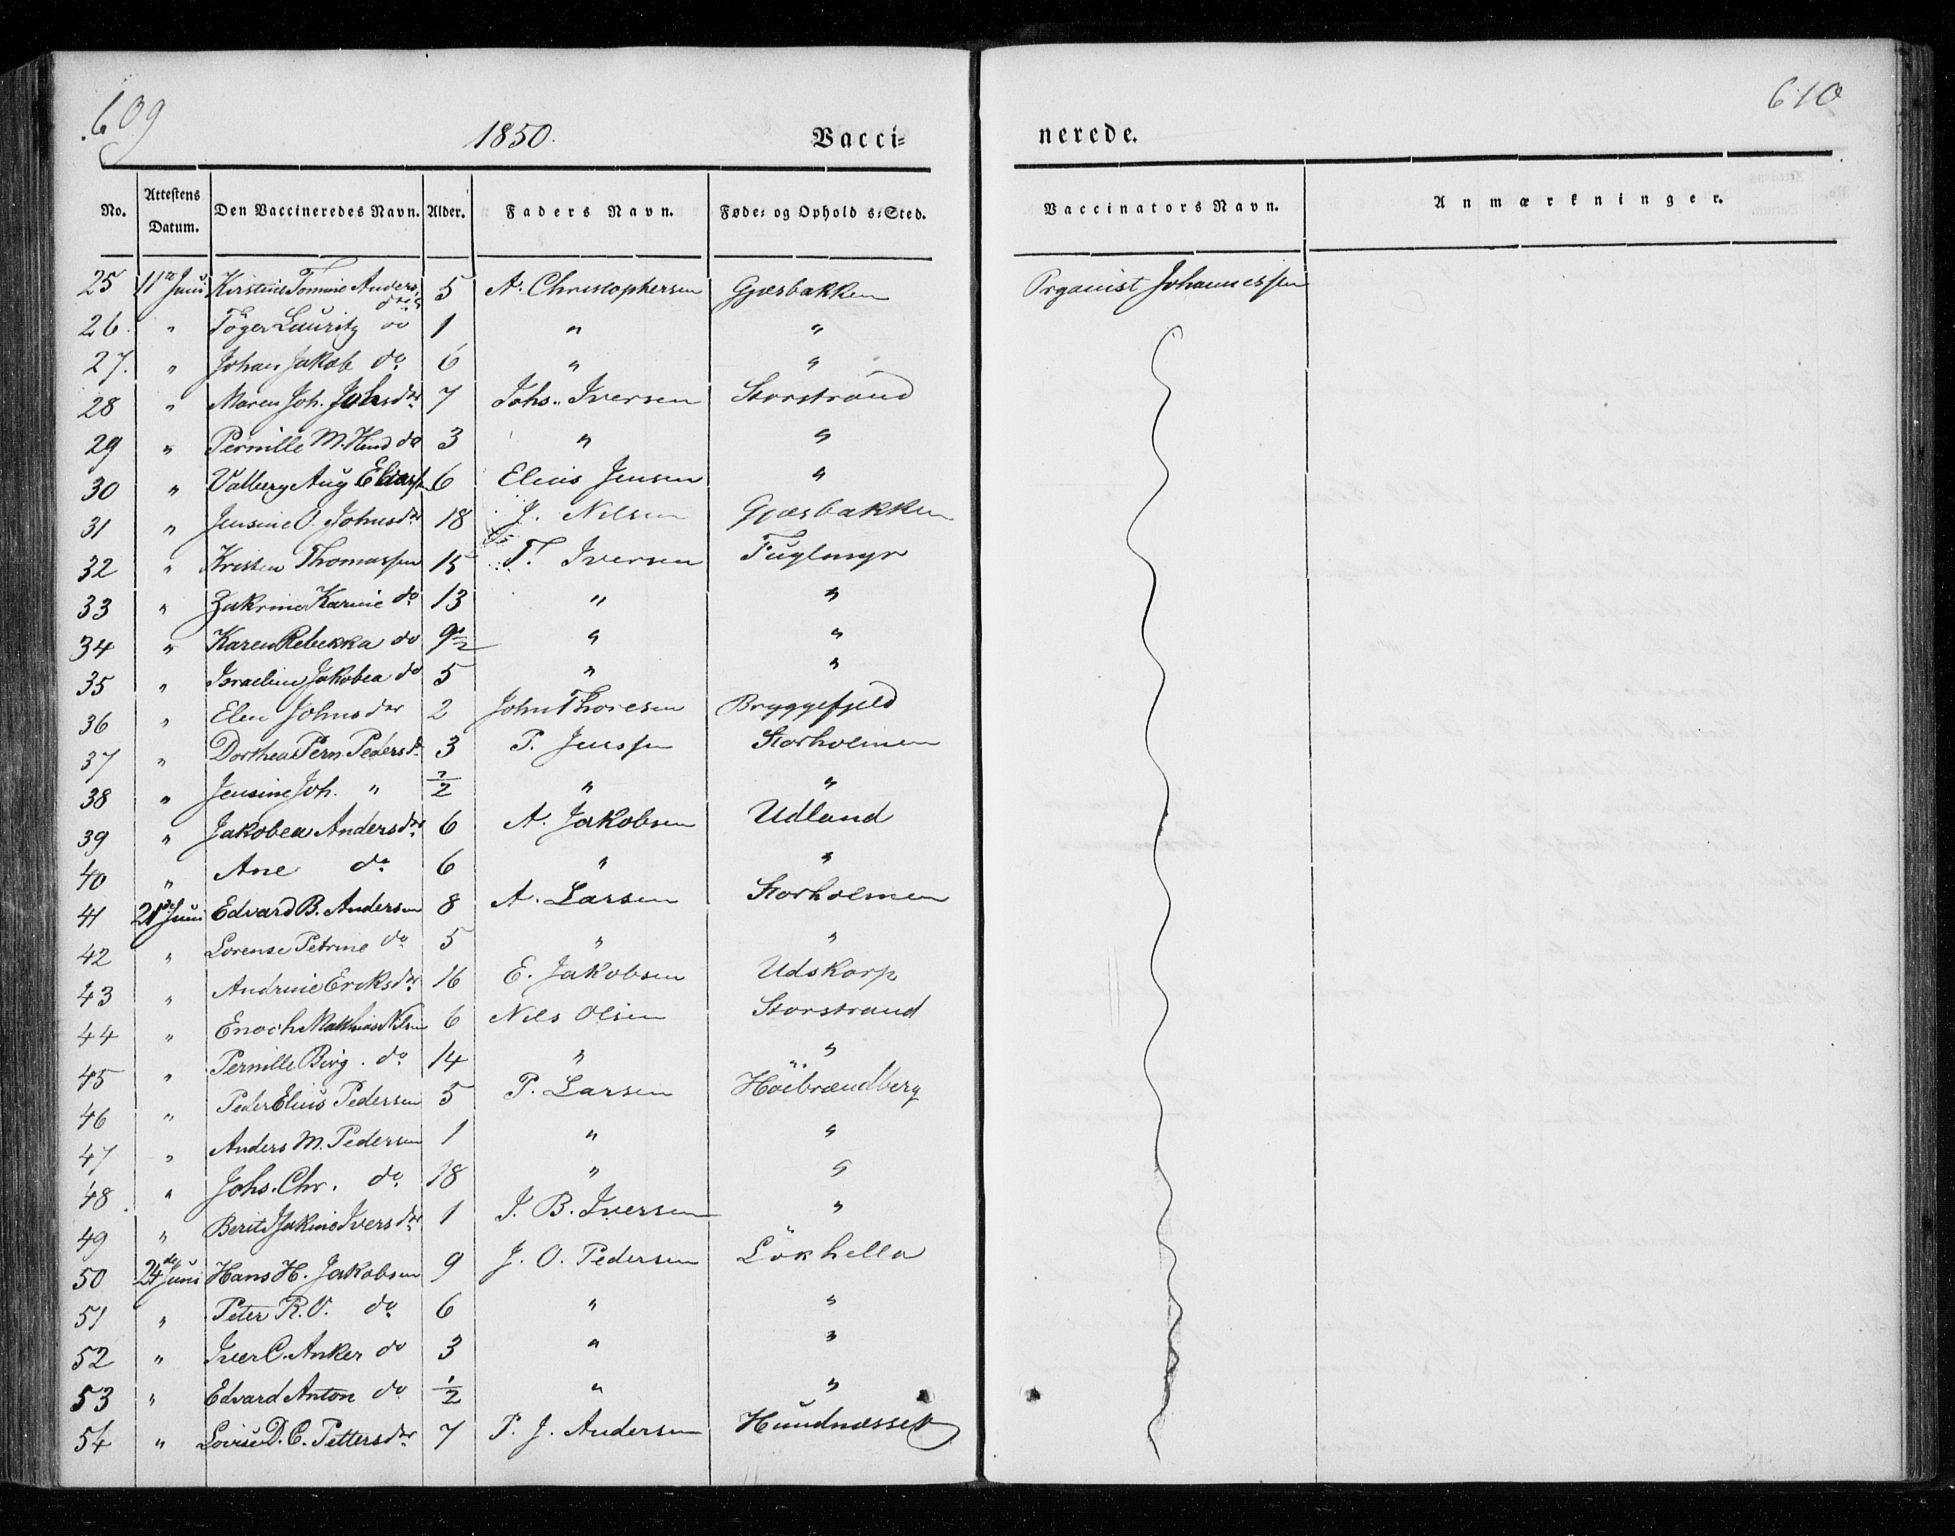 609
1850.
Vacci-
No. Attestens Datum. Den Vaccineredes Navn. Alder. Faders Navn. Føde- og Opholds-Sted.
25 11te Juni Kirstine Tomine Andersdtr 5 A. Christophersen Gjæsbakken
26. " Töger Lauritz do 1 " "
27. " Johan Jakob do 6 " "
28 " Maren Joh. Johsdtr 7 Johs. Iversen Storstrand
29 " Pernille M. Hind do 3 " "
30 " Valberg Aug Eliasn 6 Elias Jensen "
31 " Jensine O. Johnsdtr 18 J. Nilsen Gjæsbakken
32 " Kristen Thomassen 15 T. Iversen Fuglmyr
33 " Zakrine Karine do 13 " "
34 " Karen Rebekka do 9½ " "
35 " Israeline Jakobea do 5 " "
36 " Elen Johnsdtr 2 John Thoresen Bryggefjeld
37 " Dorthea Pern. Pedersd. 3 P. Jenssen Storholmen
38 " Jensine Joh. " ½ " "
39 " Jakobea Andersdtr 6 A. Jakobsen Udland
40 " Ane do 6 " "
41 21de Juni Edvard B. Andersen 8 A. Larsen Storholmen
42 " Lorense Petrine do 5 " "
43 " Andrine Eriksdtr 16 E. Jakobsen Udskarp
44 " Enoch Mathias Nilsen 6 Nils Olsen Storstrand
45 " Pernille Birg. do 14 " "
46 " Peder Elius Pedersen 5 P. Larsen Höibrændberg
47 " Anders M. Pedersen 1 " "
48 " Johs. Chr. do 18 " "
49 " Berit Jakine Iversdtr 1 I. B. Iversen "
50 24de Juni Hans H. Jakobsen 9 J. O. Pedersen Lökhella
51 " Peter R. O. do 6 " "
52 " Iver C. Anker do 3 " "
53 " Edvard Anton do ½ " "
54 " Lovise D. C. Pettersdtr 7 P. J. Andersen Hundnæsset
610
nerede.
Vaccinators Navn. Anmærkninger.
Organist Johannessen